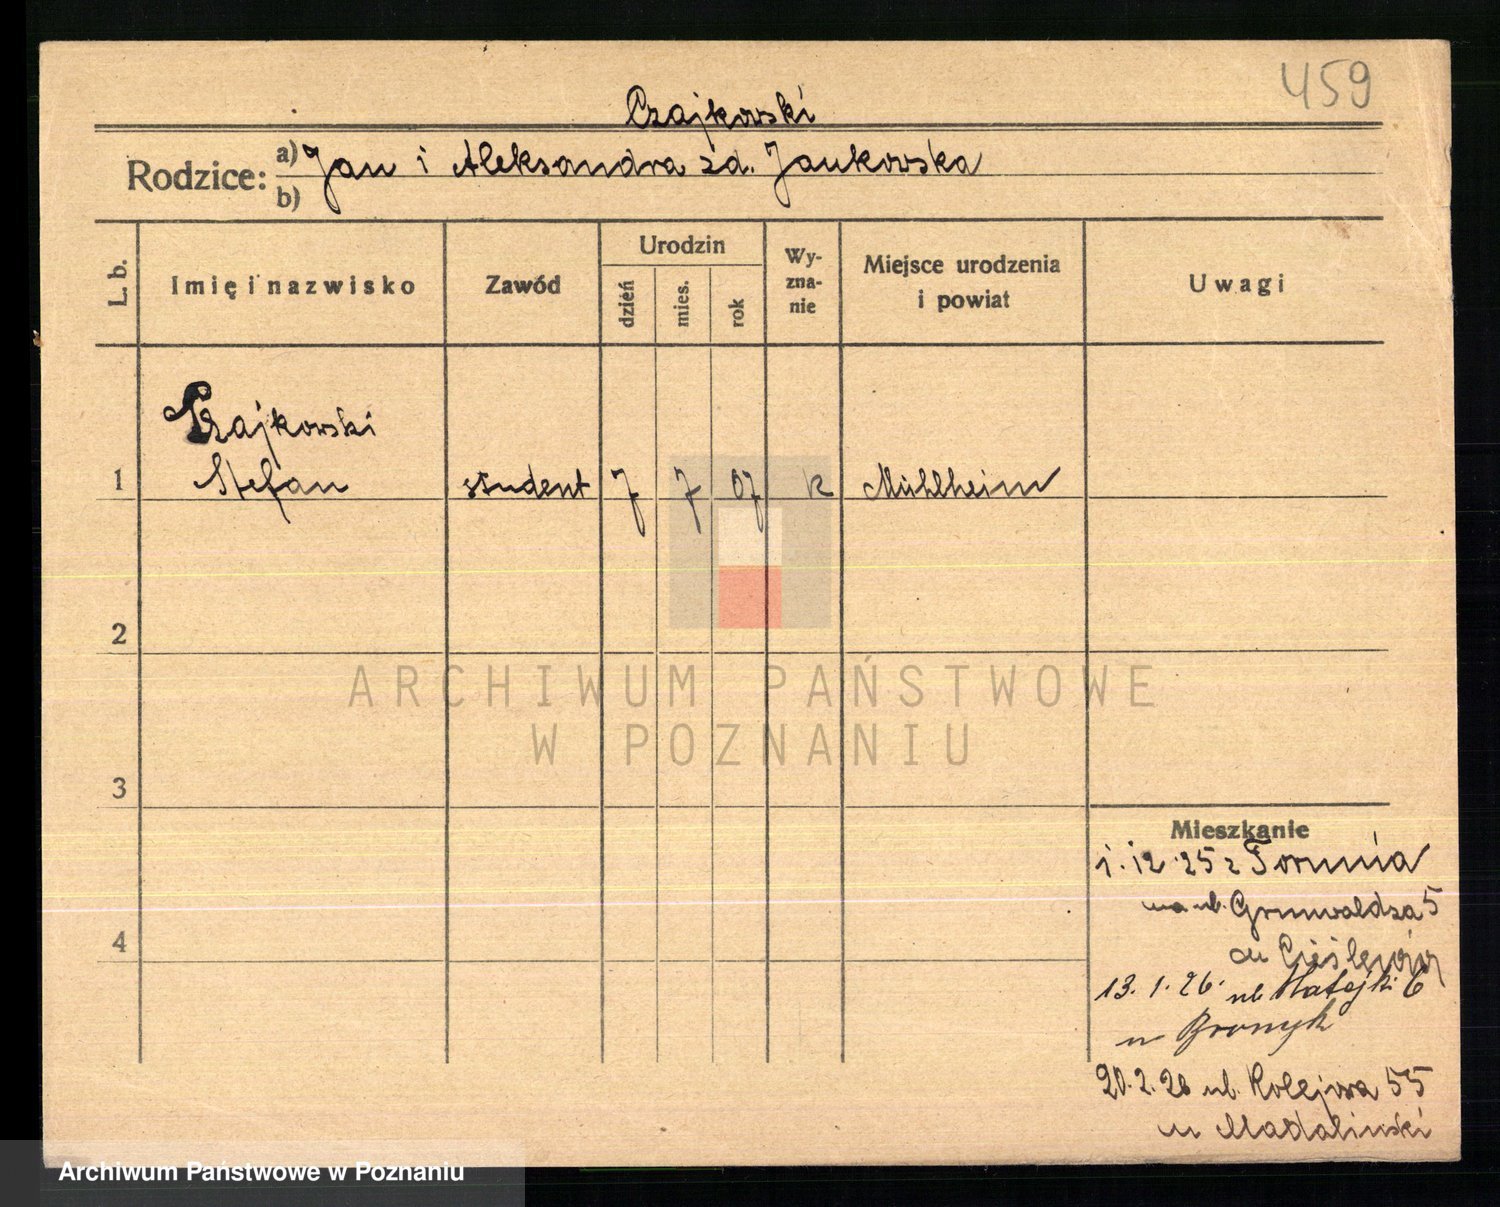 459
Czajkowski
Rodzice: a) Jan i Aleksandra zd. Jankowska
b)
L. b.
Imię i nazwisko
Zawód
Urodzin
dzień
mies.
rok
Wy-
zna-
nie
Miejsce urodzenia
i powiat
Uwagi
Czajkowski
1 Stefan student 7 7 07 k Mühlheim
2
3
4
Mieszkanie
1.12.25 z Torunia
na ul. Grunwaldzka 5
13.1.26. ul. Matejki 6
u
20.2.26 ul. Kolejowa 55
u Madaliński
ARCHIWUM PAŃSTWOWE
W POZNANIU
Archiwum Państwowe w Poznaniu